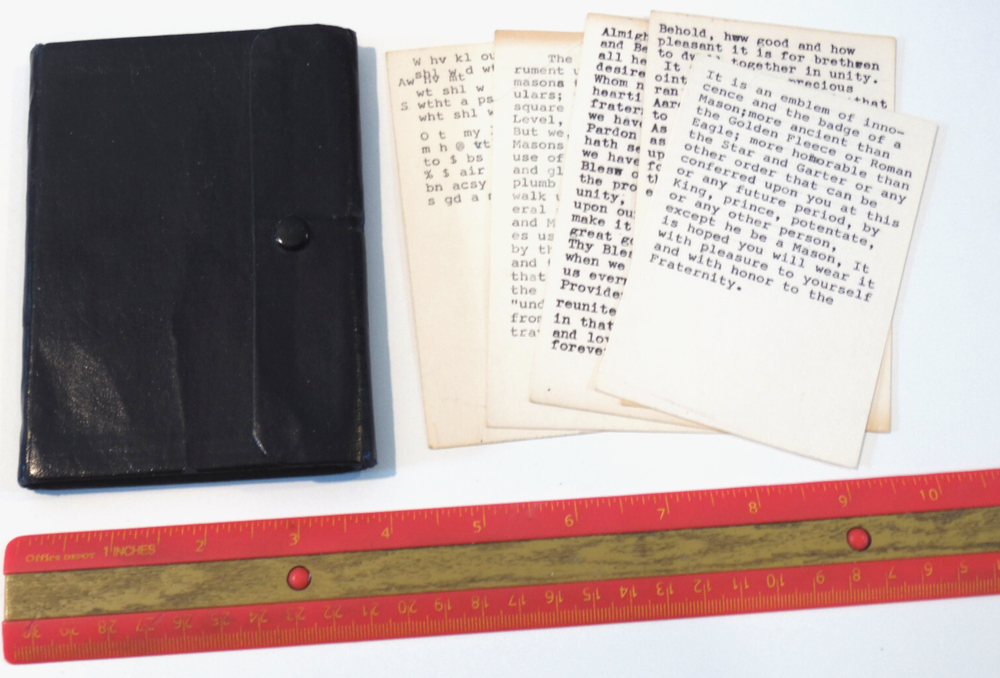 W hv kl ou
shl w d wh
Aw hv Mt
wt shl w
S wtht a ps
wht shl w
O t my
m h @ vt
to $ bs
% $ air
bn acsy
s gd a
The
rument u
masona
ulars;
square
Level,
But we,
Masons
use of
and gl
plumb
walk u
eral
and M
es us
by th
and
that
the
"und
from
tra
Almigh
and Be
all he
desire
Whom n
hearti
frater
we have
Pardon
hath se
we have
Bless o
the pro
unity,
upon our
make it
great go
Thy Bles
when we
us every
Provide
reunite
in that
and lov
foreve
Behold, how good and how
pleasant it is for brethren
to dw together in unity.
It recious
oint that
ran
Aar
to
As
as
up
fo
th
e
It is an emblem of inno-
cence and the badge of a
Mason;more ancient than
the Golden Fleece or Roman
Eagle; more honorable than
the Star and Garter or any
other order that can be
conferred upon you at this
or any future period, by
King, prince, potentate,
or any other person,
except he be a Mason, It
is hoped you will wear it
with pleasure to yourself
and with honor to the
Fraternity.
Office DEPOT 1 INCHES 2 3 4 5 6 7 8 9 10
30 29 28 27 26 25 24 23 22 21 20 19 18 17 16 15 14 13 12 11 10 9 8 7 6 5